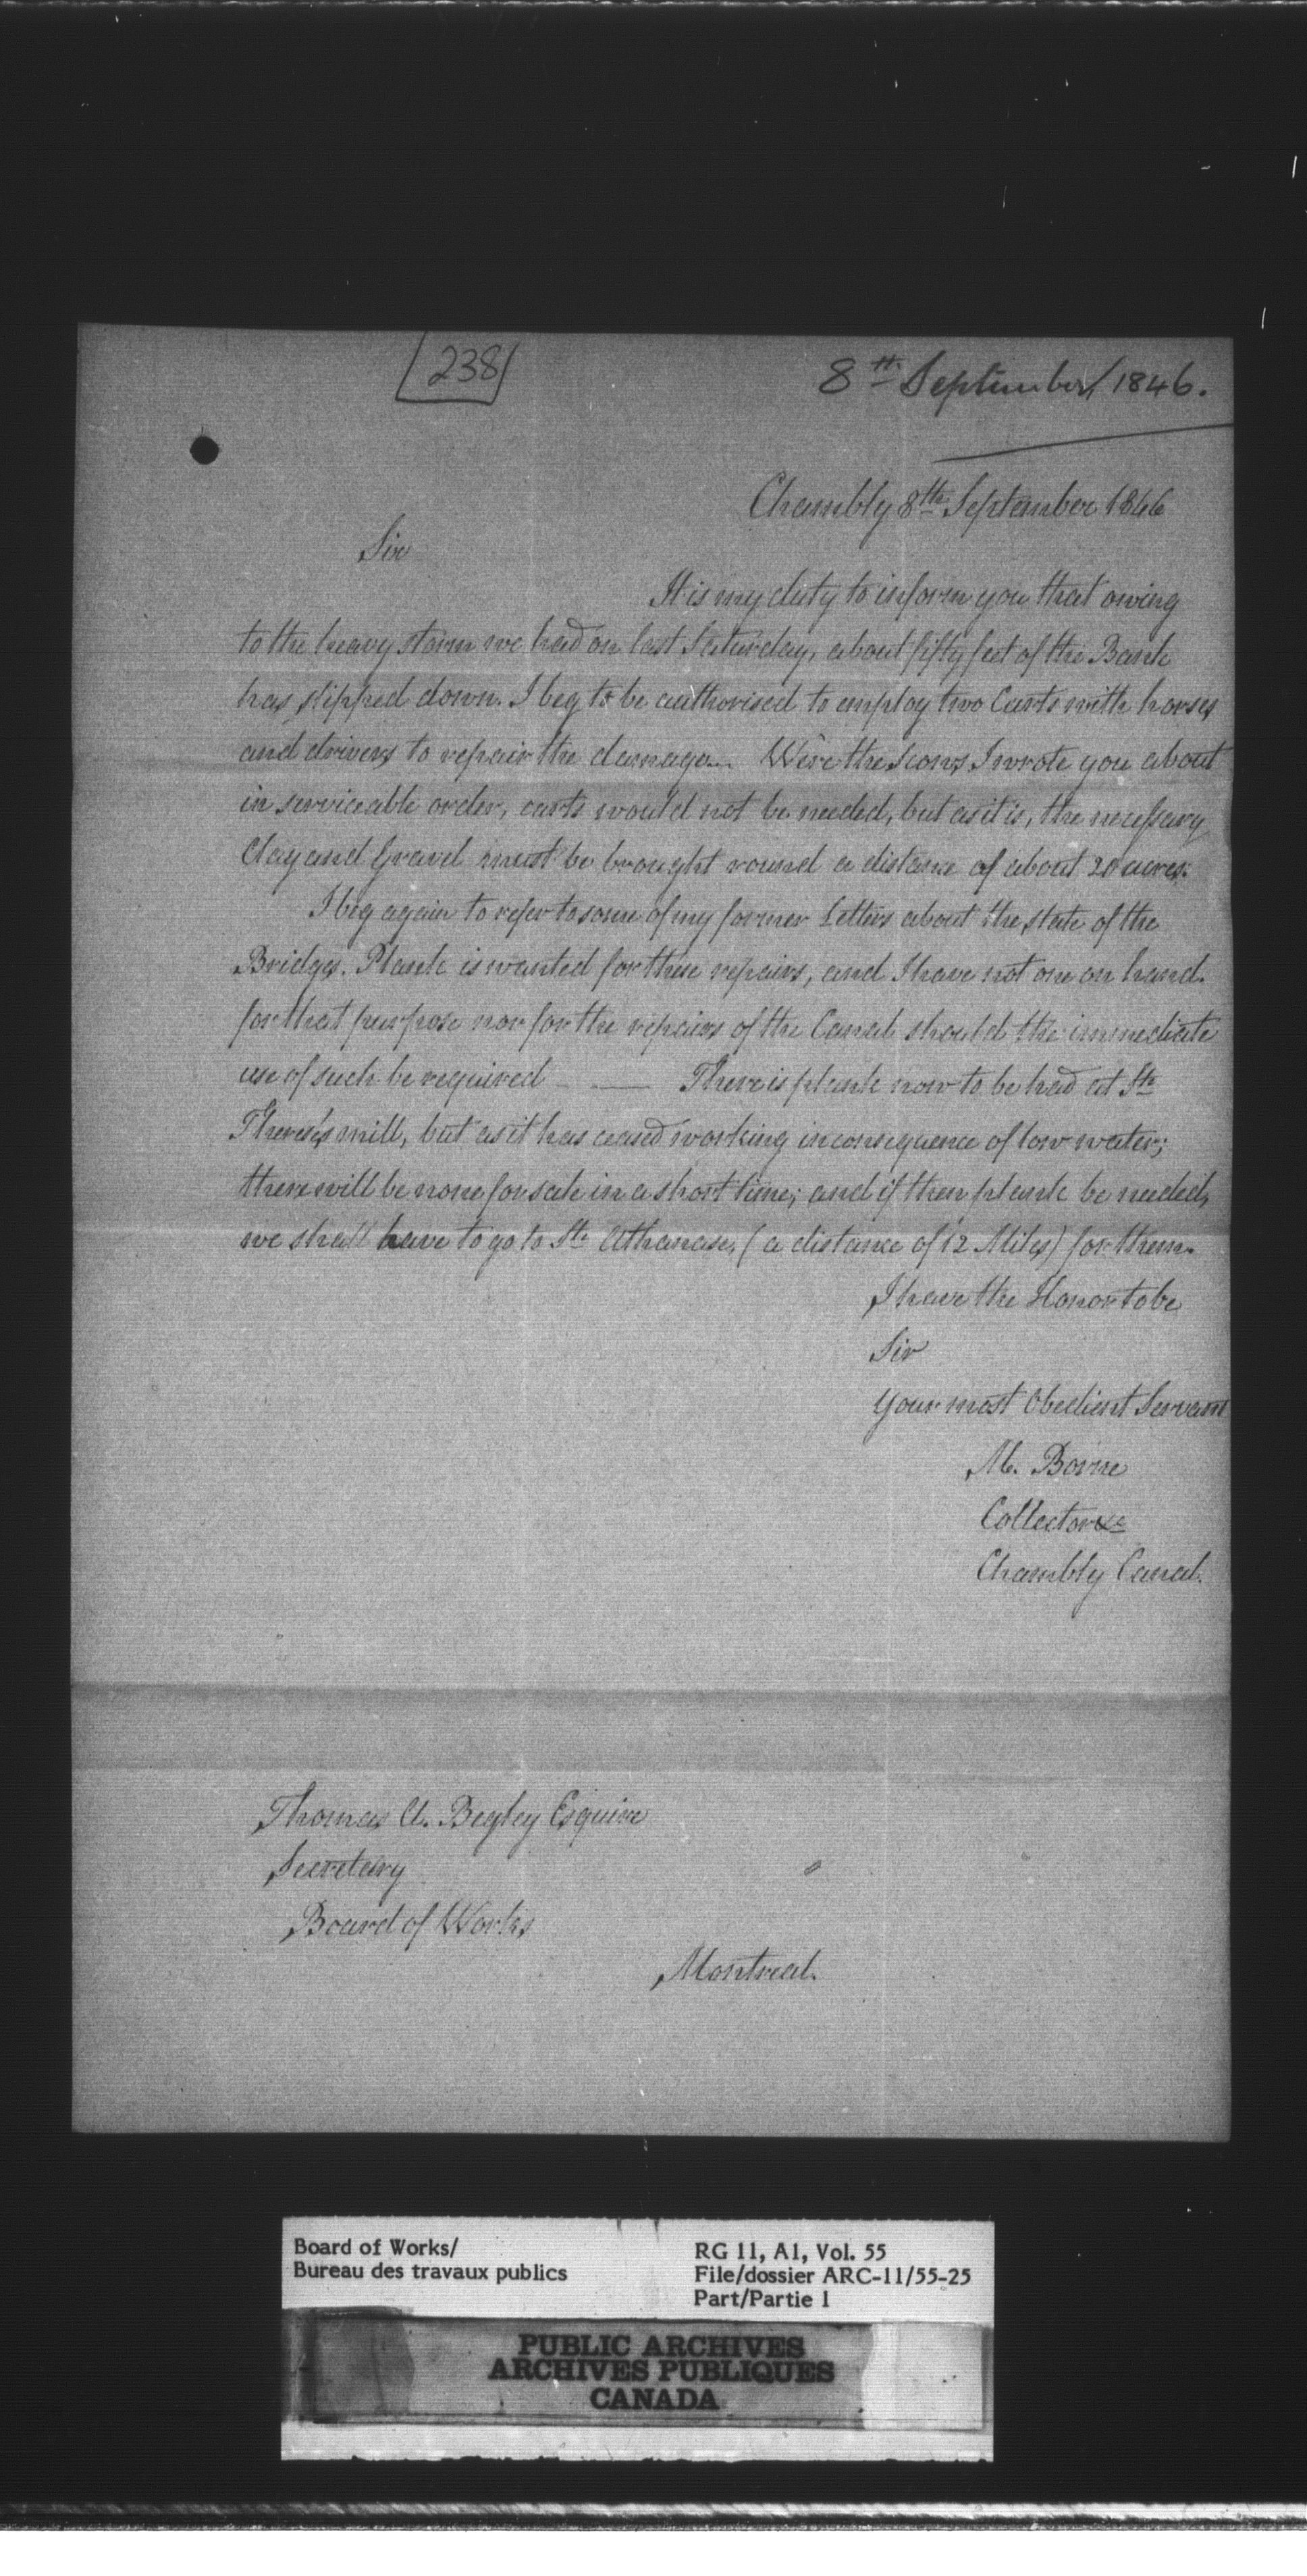 238
8th September 1846.
Chambly 8th September 1846
Sir
It is my duty to inform you that owing
to the heavy storm we had on last Saturday, about fifty feet of the Bank
has slipped down. I beg to be authorised to employ two Carts with horses
and drivers to repair the damage. Were the Scows I wrote you about
in serviceable order, carts would not be needed, but as it is, the necessary
Clay and Gravel must be brought round a distance of about 20 acres.
I beg again to refer to some of my former Letters about the state of the
Bridges. Plank is wanted for these repairs, and I have not one on hand.
for that purpose nor for the repairs of the Canal should the immediate
use of such be required — — There is plank now to be had at Ste
Therese's mill, but as it has ceased working in consequence of low water;
there will be none for sale in a short time; and if then plank be needed,
we shall have to go to St. Athanase, (a distance of 12 Miles) for them.
I have the Honor to be
Sir
Your most Obedient Servant
M. Borne
Collector &c
Chambly Canal.
Thomas A. Begley Esquire
Secretary
Board of Works
Montreal.
Board of Works/
Bureau des travaux publics
RG 11, A1, Vol. 55
File/dossier ARC-11/55-25
Part/Partie 1
PUBLIC ARCHIVES
ARCHIVES PUBLIQUES
CANADA